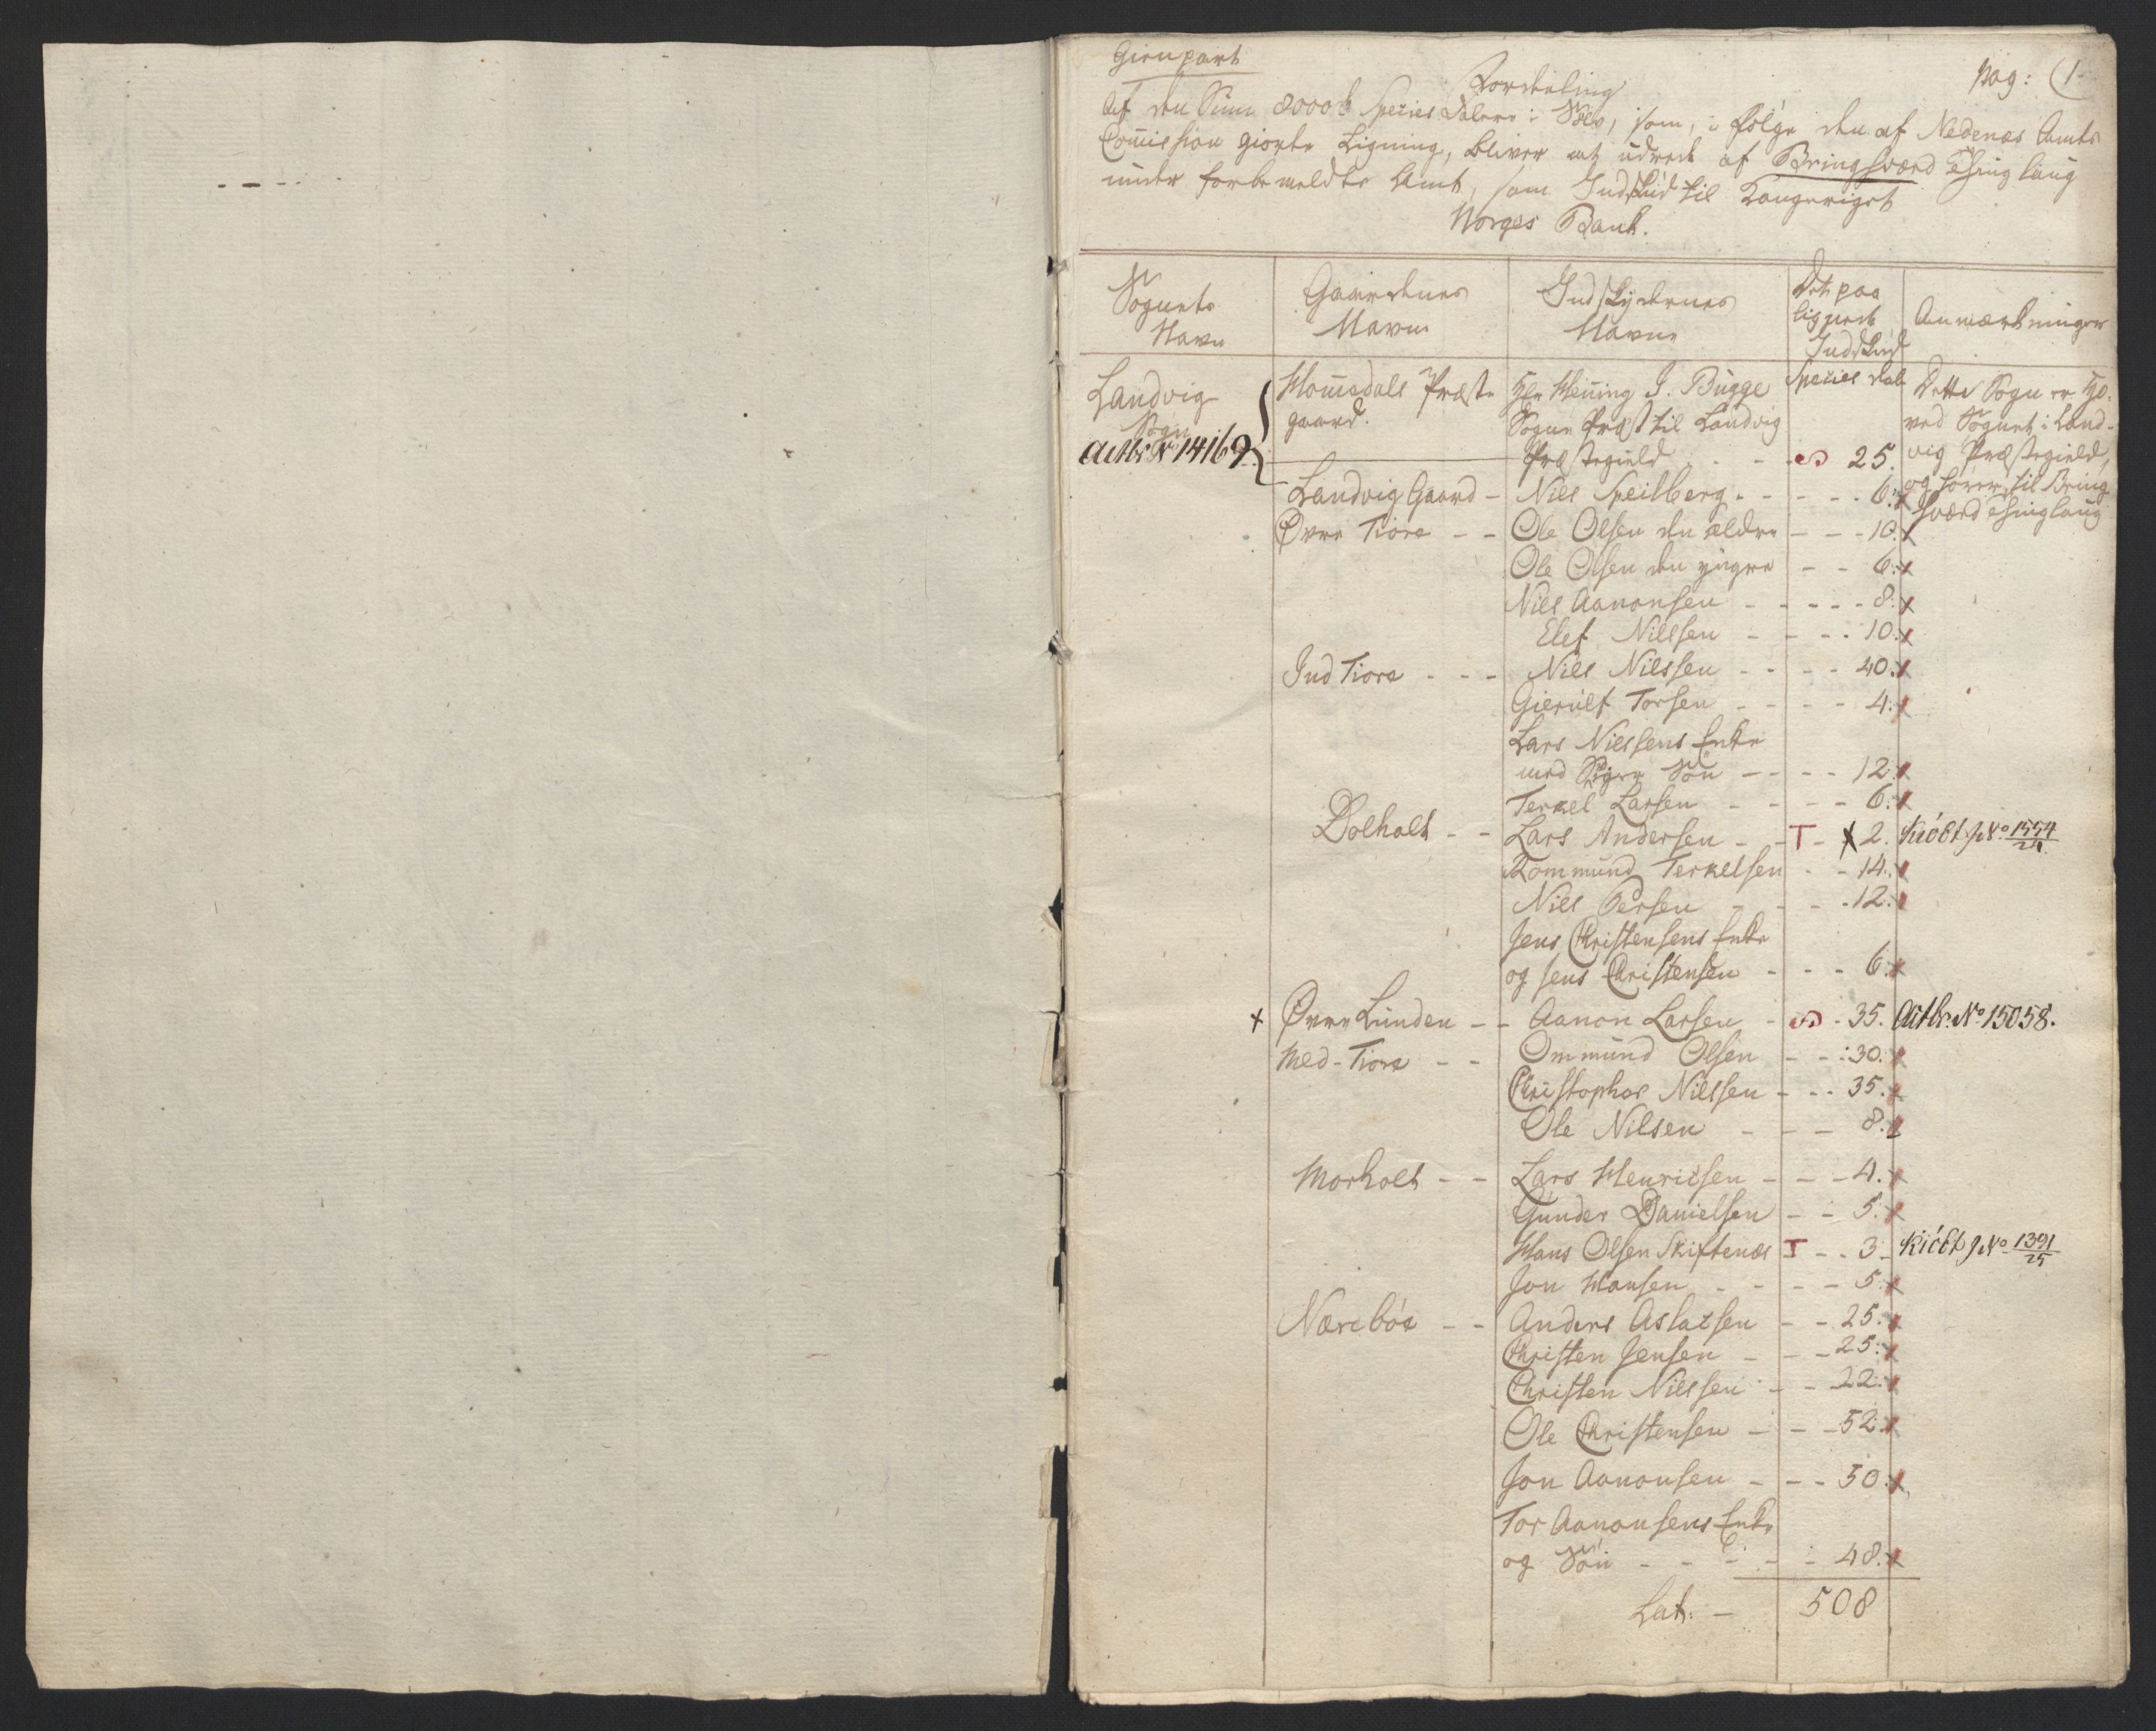 Gienpart
pag: (1-
Fordeeling
Af den Sum 8000 Species Daler i Sølv, som, i følge den af Nedenæs Amts
Commission giorte Ligning, bliver at udrede af Bringsværd Thinglaug
under forbemeldte Amt, som Indskud til Kongeriget
Norges Bank.
Sognets Navn
Gaardenes Navne
Indskydernes Navne
Det paalignede Indskud
Anmærkninger
Species Dal
Landvig Sogn
Actbr. No 14169
Hommedals Præstegaard.
Hr Henning J. Bugge
Sogne Præst til Landvig
Præstegield - - 25.
Dette Sogn er Hoved Sognet i Landvig Præstegield, og hører til Bringsværd Thinglaug
Landvig Gaard - Niels Speilberg - - - 6.
Øvre Tiore - - Ole Olsen den ældre - - - 10.
Ole Olsen den yngre - - 6.
Niels Aanonsen - - - - - 8.
Elef Nilssen - - - - 10.
Ind Tiore - - - Niels Nilssen - - - - 40.
Gierulf Torsen - - - - 4.
Lars Nielsens Enke
med Søn - - - - 12.
Terkel Larsen - - - - 6.
Dolholt - - Lars Andersen - - T - X 2. Kiøbt J No 1554/24
Rommund Terkelsen - - 14.
Niels Persen - - - 12.
Jens Christensens Enke
og Jens Christensen - - - 6.
x Øvre Lunden - - Aanon Larsen - - 35. Actbr. No 15058.
Med-Tiore - - Ommund Olsen - - 30.
Christopher Nielssen - - - 35.
Ole Nilsen - - - 8.
Morholt - - Lars Henricsen - - - 4.
Gunder Danielsen - - 5.
Hans Olsen Skiftenæs T - - 3. Kiøbt J No 1391/25
Jon Hansen - - - - 5.
Nærebøe - - Anders Aslaksen - - 25.
Christen Jensen - - - 25.
Christen Nielssen - - 22.
Ole Christensen - - - 52.
Jon Aanonsen - - - 50.
Tor Aanonsens Enke
og Søn - - - - - 48.
Lat: - 508